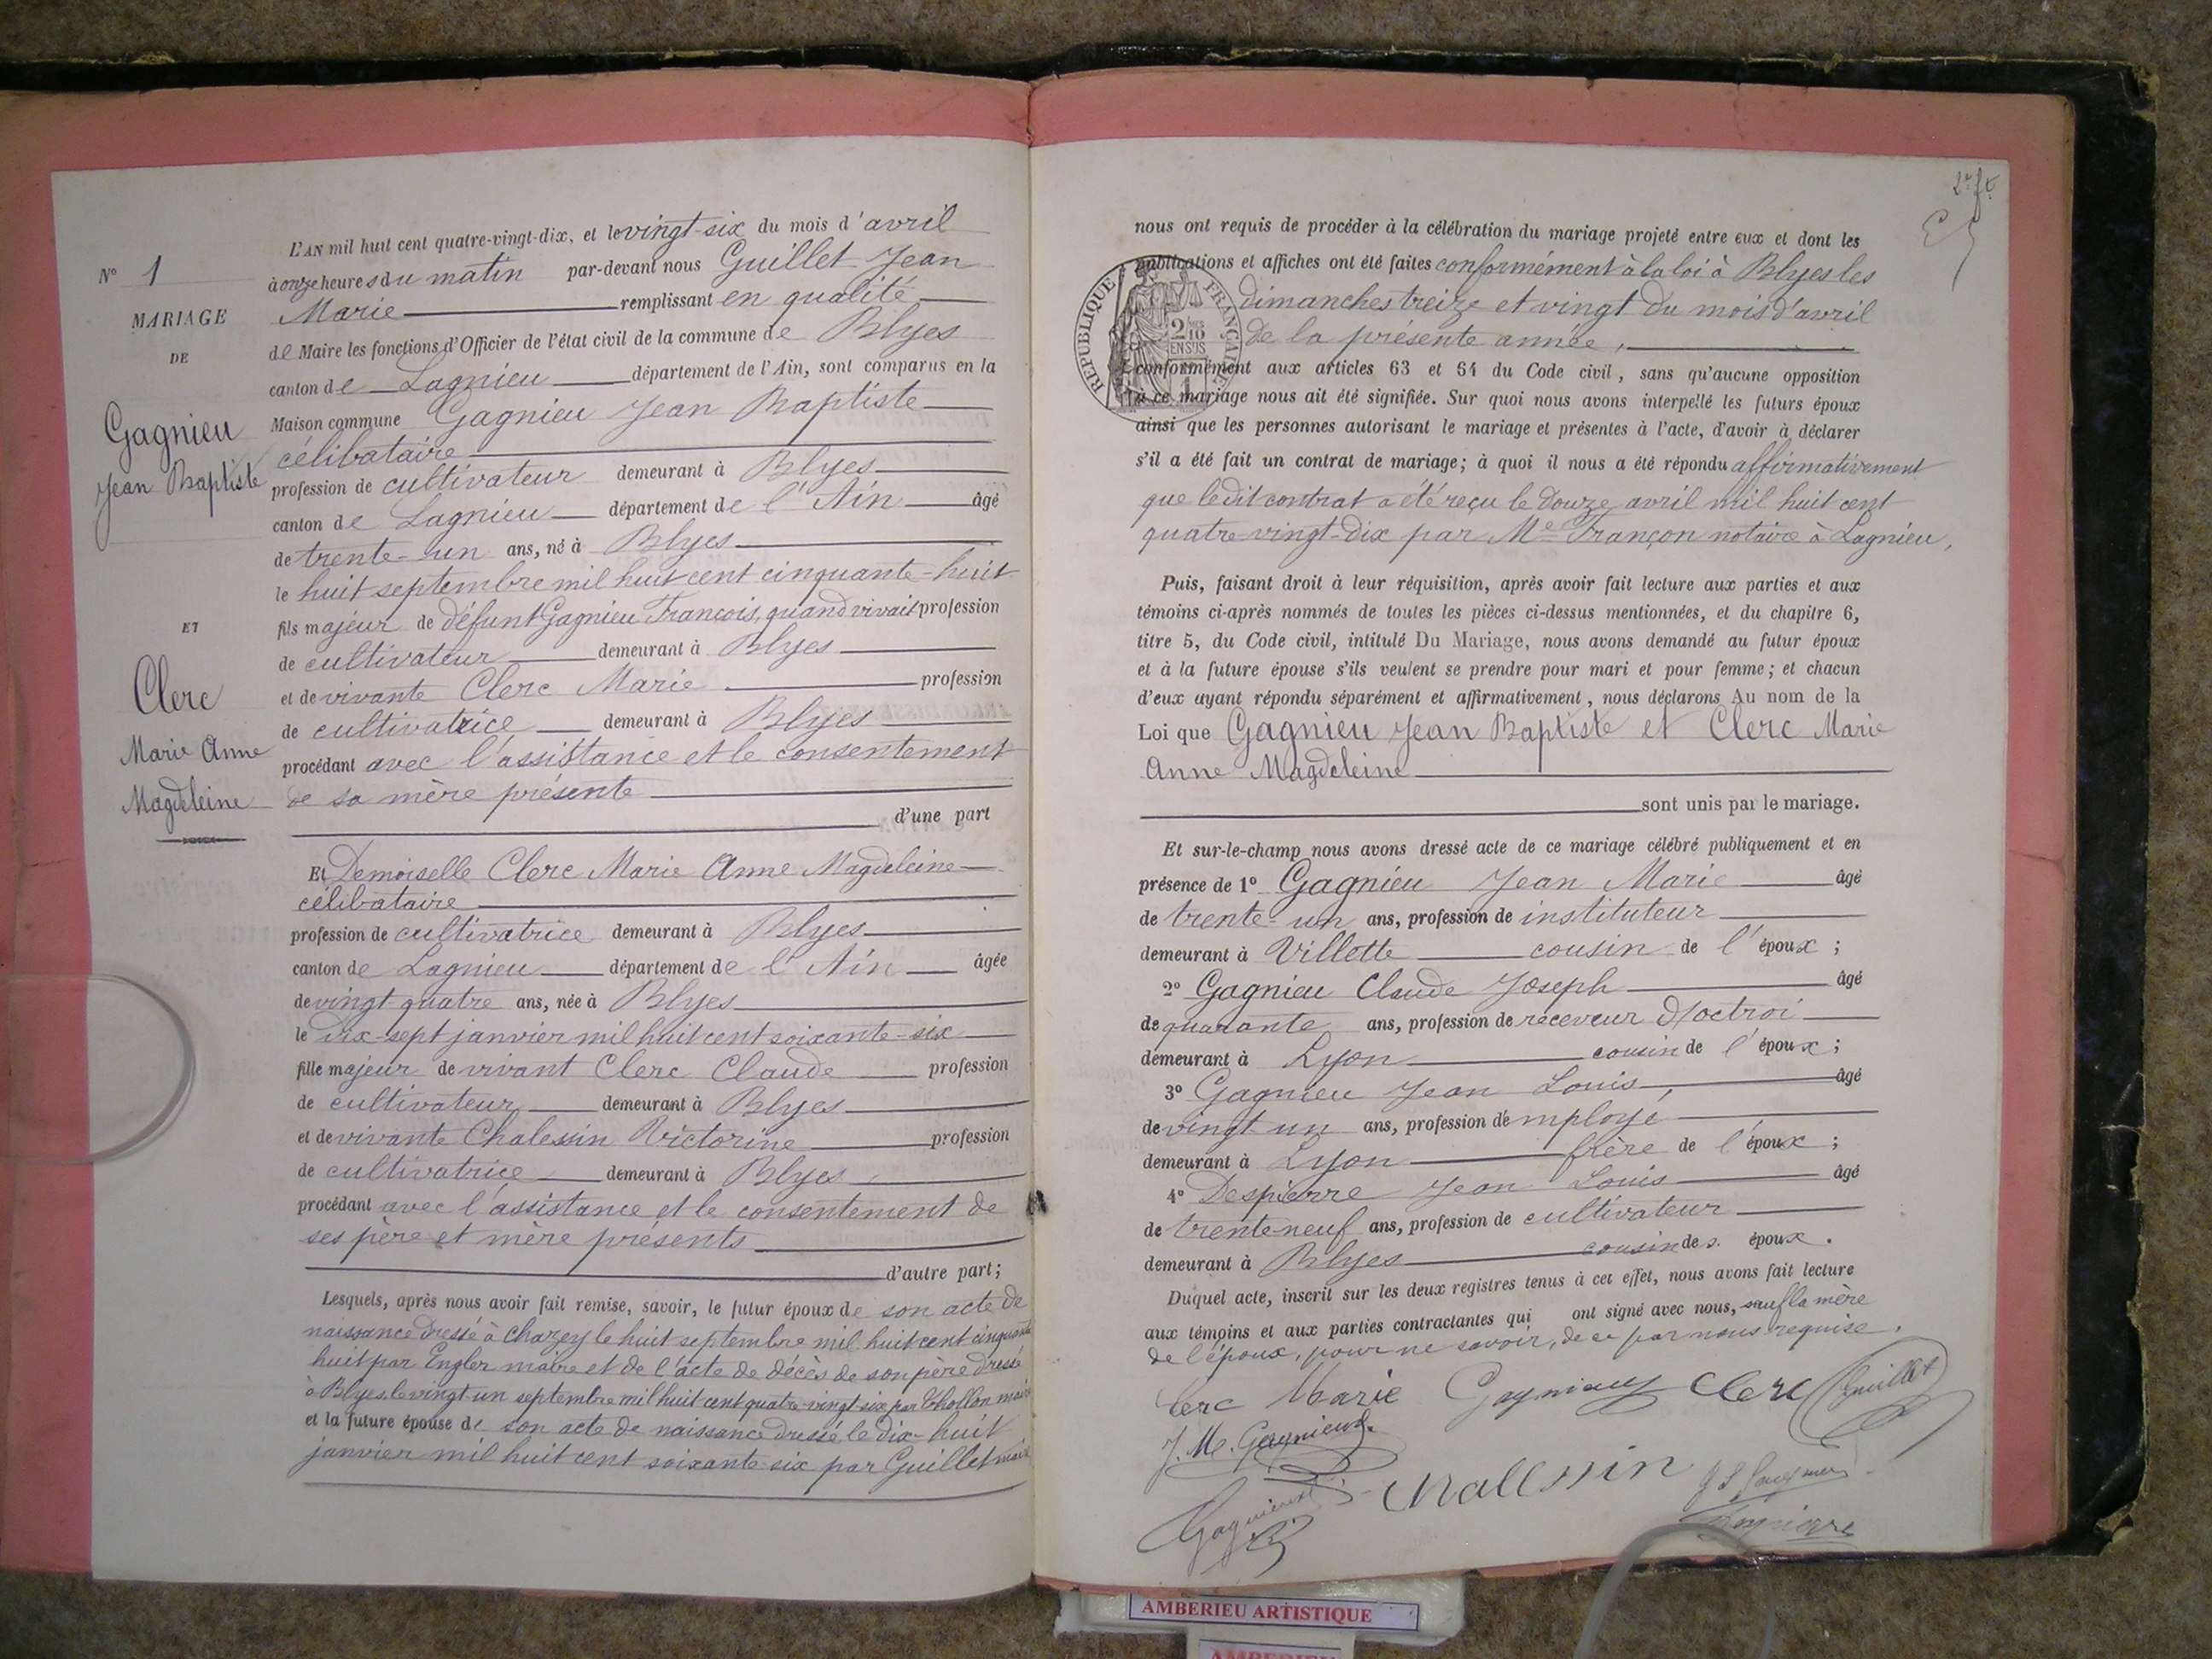 N° 1
MARIAGE
DE
Gagnieu
Jean Baptiste
ET
Clerc
Marie Anne
Magdeleine
L'AN mil huit cent quatre-vingt-dix, et le vingt-six du mois d'avril
à onze heures du matin par-devant nous Guillet Jean
Marie remplissant en qualité
de Maire les fonctions d'Officier de l'état civil de la commune de Blyes
canton de Lagnieu département de l'Ain, sont comparus en la
Maison commune Gagnieu Jean Baptiste
célibataire
profession de cultivateur demeurant à Blyes
canton de Lagnieu département de l'Ain âgé
de trente-un ans, né à Blyes
le huit septembre mil huit cent cinquante-huit
fils majeur de défunt Gagnieu François, quand vivait profession
de cultivateur demeurant à Blyes
et de vivante Clerc Marie profession
de cultivatrice demeurant à Blyes
procédant avec l'assistance et le consentement
de sa mère présente
d'une part
Et Demoiselle Clerc Marie Anne Magdeleine
célibataire
profession de cultivatrice demeurant à Blyes
canton de Lagnieu département de l'Ain âgée
de vingt-quatre ans, née à Blyes
le dix-sept janvier mil huit cent soixante-six
fille majeur de vivant Clerc Claude profession
de cultivateur demeurant à Blyes
et de vivante Chalessin Victorine profession
de cultivatrice demeurant à Blyes
procédant avec l'assistance et le consentement de
ses père et mère présents
d'autre part;
Lesquels, après nous avoir fait remise, savoir, le futur époux de son acte de
naissance dressé à Chazey le huit septembre mil huit cent cinquante
huit par Engler maire et de l'acte de décès de son père dressé
à Blyes le vingt-un septembre mil huit cent quatre-vingt-six par Thollon maire
et la future épouse de son acte de naissance dressé le dix-huit
janvier mil huit cent soixante-six par Guillet maire
2e ft
nous ont requis de procéder à la célébration du mariage projeté entre eux et dont les
publications et affiches ont été faites conformément à la loi à Blyes les
dimanches treize et vingt du mois d'avril
de la présente année,
REPUBLIQUE FRANÇAISE
2/10 EN SUS
conformément aux articles 63 et 64 du Code civil, sans qu'aucune opposition
à ce mariage nous ait été signifiée. Sur quoi nous avons interpellé les futurs époux
ainsi que les personnes autorisant le mariage et présentes à l'acte, d'avoir à déclarer
s'il a été fait un contrat de mariage; à quoi il nous a été répondu affirmativement
que ledit contrat a été reçu le douze avril mil huit cent
quatre-vingt-dix par Me Françon notaire à Lagnieu,
Puis, faisant droit à leur réquisition, après avoir fait lecture aux parties et aux
témoins ci-après nommés de toutes les pièces ci-dessus mentionnées, et du chapitre 6,
titre 5, du Code civil, intitulé Du Mariage, nous avons demandé au futur époux
et à la future épouse s'ils veulent se prendre pour mari et pour femme; et chacun
d'eux ayant répondu séparément et affirmativement, nous déclarons Au nom de la
Loi que Gagnieu Jean Baptiste et Clerc Marie
Anne Magdeleine
sont unis par le mariage.
Et sur-le-champ nous avons dressé acte de ce mariage célébré publiquement et en
présence de 1° Gagnieu Jean Marie âgé
de trente-un ans, profession de instituteur
demeurant à Villette cousin de l'époux;
2° Gagnieu Claude Joseph âgé
de quarante ans, profession de receveur d'octroi
demeurant à Lyon cousin de l'époux;
3° Gagnieu Jean Louis, âgé
de vingt-un ans, profession d'employé
demeurant à Lyon frère de l'époux;
4° Despierre Jean Louis âgé
de trente-neuf ans, profession de cultivateur
demeurant à Blyes cousin des époux.
Duquel acte, inscrit sur les deux registres tenus à cet effet, nous avons fait lecture
aux témoins et aux parties contractantes qui ont signé avec nous, sauf la mère
de l'époux, pour ne savoir, de ce par nous requise.
Clerc Marie Gagnieux Clerc Guillet
J. M. Gagnieux
Gagnieux Chalessin
AMBERIEU ARTISTIQUE
AMBERIEU